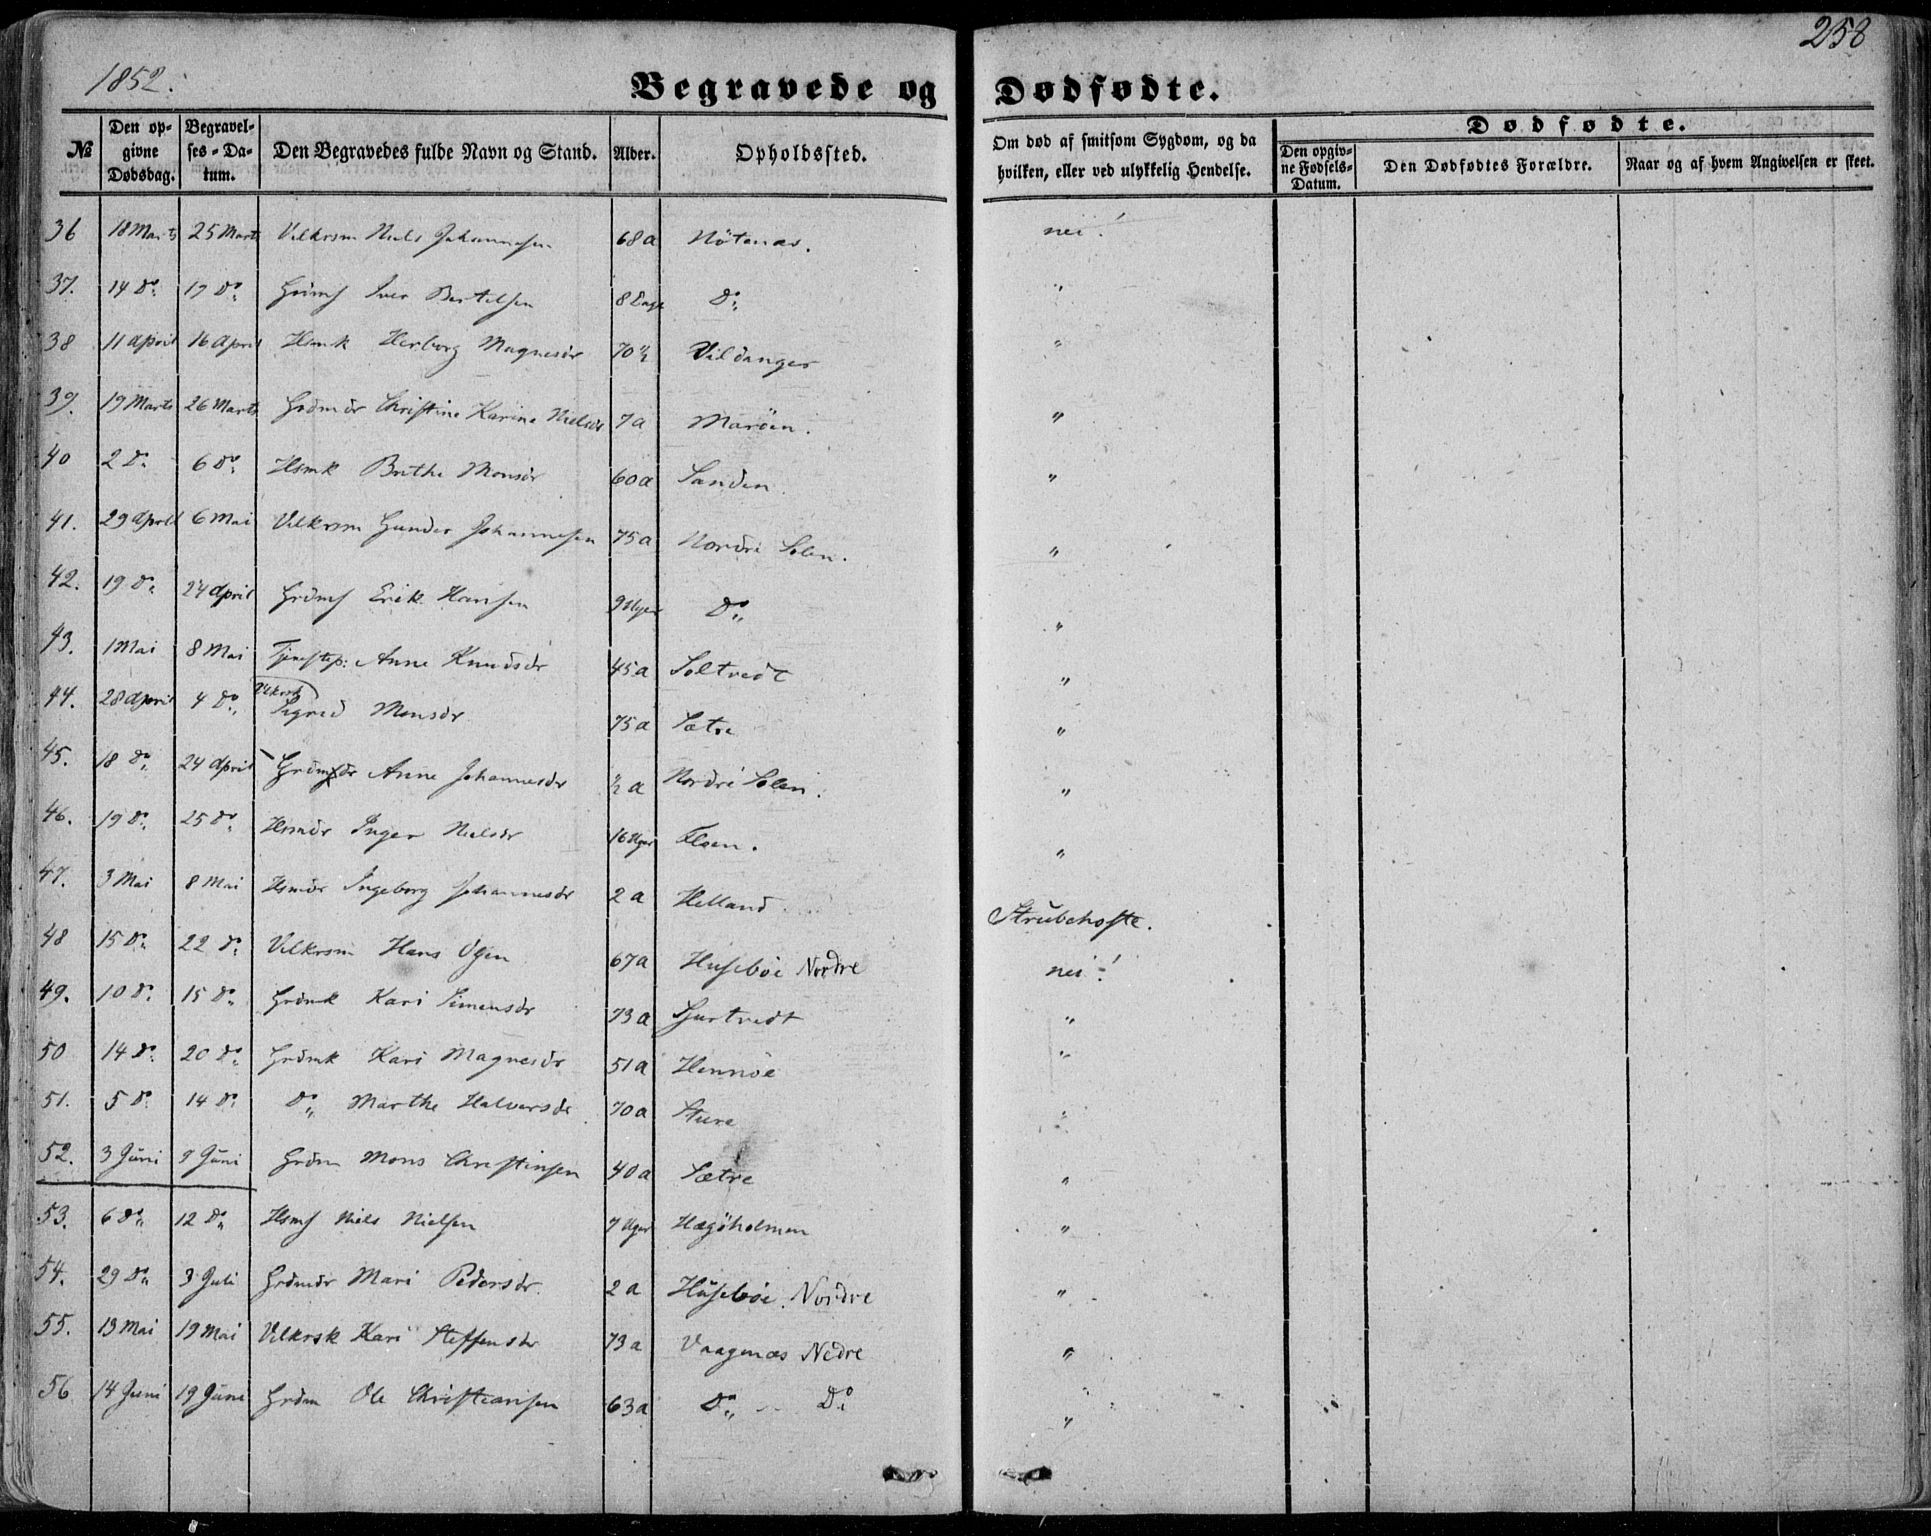 258
1852.
Begravede og Dødfødte.
№ Den opgivne Dødsdag. Begravelses-Datum. Den Begravedes fulde Navn og Stand. Alder. Opholdssted. Om død af smitsom Sygdom, og da hvilken, eller ved ulykkelig Hendelse. Dødfødte. Den opgivne Fødsels-Datum. Den Dødfødtes Forældre. Naar og af hvem Angivelsen er skeet.
36 18 Marts 25 Marts Vilkrsm Niels Johannesen 68 a Nötenæs. nei!
37. 14 Do 17 Do Grdms Iver Bertelsen 8 Dage Do "
38 11 April 16 April Hsmk Herborg Magnesdr 70½ Vildanger "
39. 19 Marts 26 Marts Grdmdr Christine Karine Nielsdr 7 a Maröen. "
40 2 Do 6 Do Hsmk Brithe Monsdr 60 a Sanden "
41. 29 April 6 Mai Vilkrsm Gunder Johannesen 75 a Nordre Solen. "
42. 19 Do 24 April Grdms Erik Hansen 9 Uger Do "
43. 1 Mai 8 Mai Tjenestep: Anne Knudsdr 45 a Soltvedt "
44. 28 April 4 Do Vilkrsk Sigrid Monsdr 75 a Sætre "
45. 18 Do 24 April Grdmdr Anne Johannesdr ½ a Nordre Solen. "
46. 19 Do 25 Do Hsmdr Inger Nielsdr 16 Uger Floen. "
47. 3 Mai 8 Mai Hsmdr Ingeborg Johannesdr 2 a Helland Strubehoste.
48 15 Do 22 Do Vilkrsm Hans Ogen 67 a Husebøe Nordre nei!
49. 10 Do 15 Do Grdmk Kari Simensdr 73 a Sjurtvedt "
50 14 Do 20 Do Grdmk Kari Magnesdr 51 a Hennöe "
51. 5 Do 14 Do Do Marthe Halvorsdr 70 a Sture "
52. 3 Juni 9 Juni Grdm Mons Christinsen 40 a Sætre "
53. 6 Do 12 Do Hsms Niels Nielsen 7 Uger Hægöholmen "
54. 29 Do 3 Juli Grdmdr Mari Pedersdr. 2 a Husebøe Nordre "
55. 13 Mai 19 Mai Vilkrsk Kari Steffensdr 73 a Vaagenæs Nedre "
56 14 Juni 19 Juni Grdm Ole Christiansen 63 a Do Do "